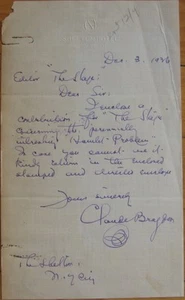 Dec. 3, 1936
Editor "The Stage":
Dear Sir:
Enclosed is a
contribution for "The Stage"
concerning the perennially
interesting "Hamlet-Problem"
In case you cannot use it
kindly return in the enclosed
stamped and directed envelope
Yours sincerely
Claude Bragdon
N.Y. City